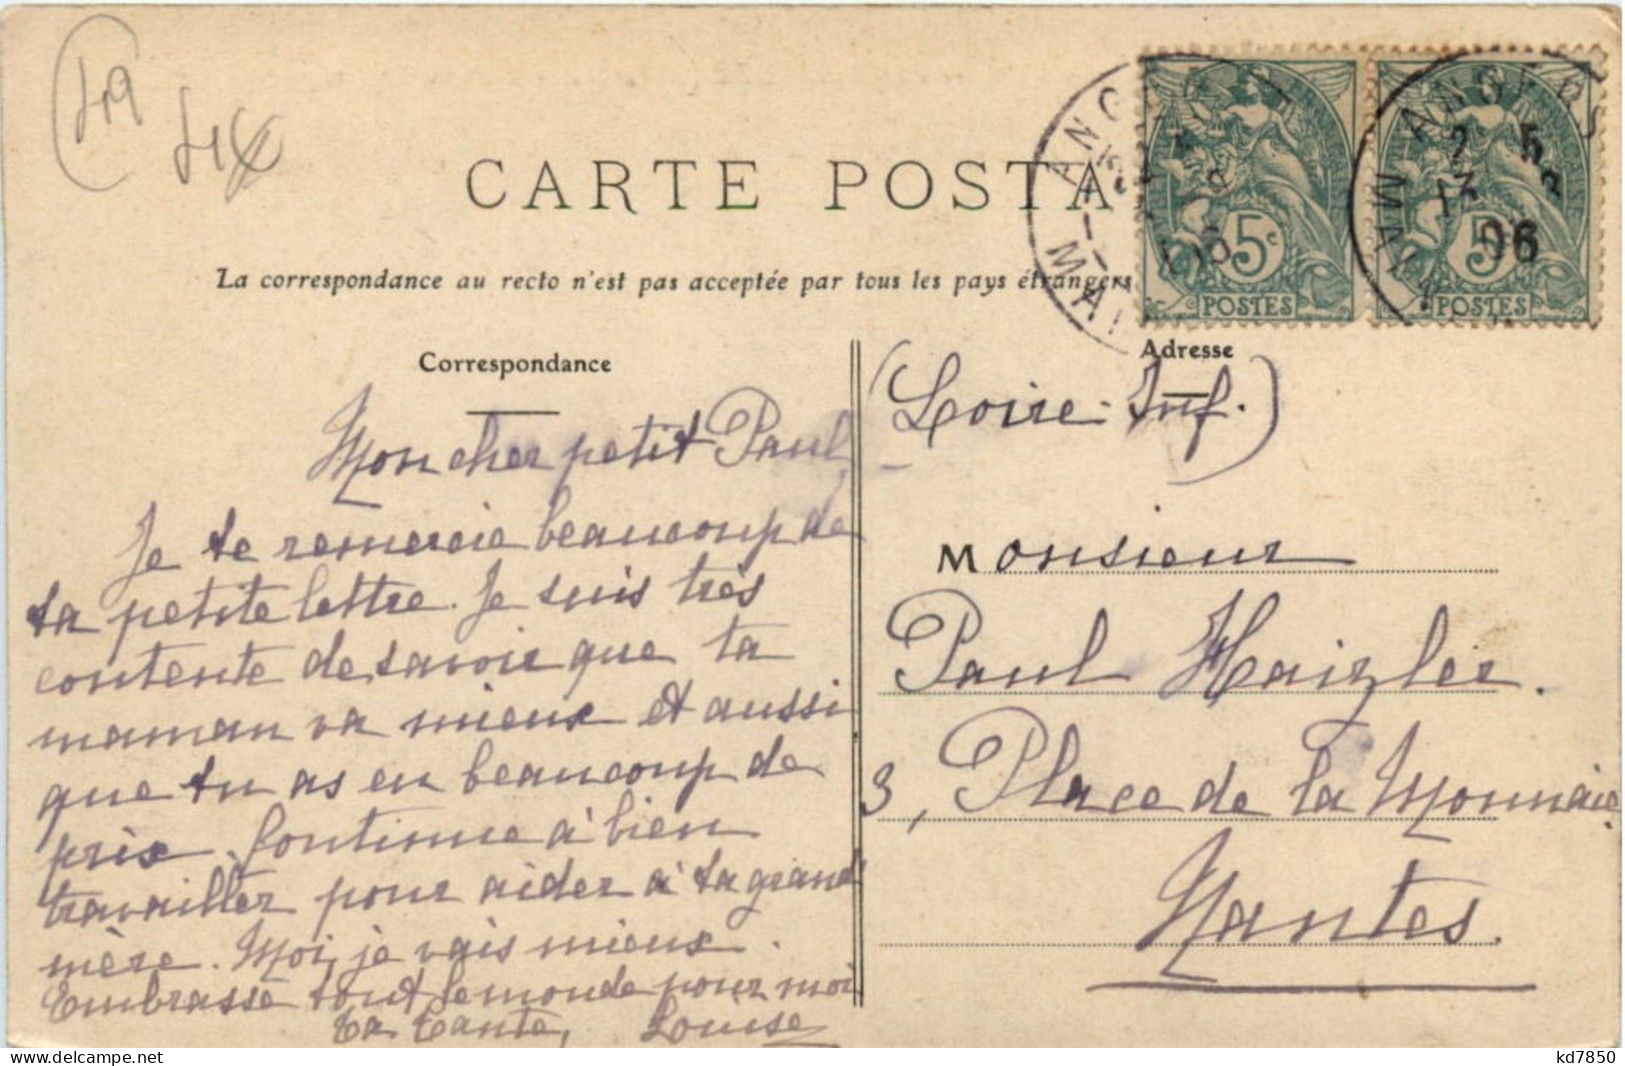 49 44
CARTE POSTA
La correspondance au recto n'est pas acceptée par tous les pays étrangers
ANGERS
MAI
5c
POSTES
ANGERS
2 5
06
MAI
5c
POSTES
Correspondance
Mon cher petit Paul,
Je te remercie beaucoup de
ta petite lettre. Je suis très
contente de savoir que ta
maman va mieux et aussi
que tu as eu beaucoup de
prix. Continue à bien
travailler pour aider à ta grand
mère. Moi, je vais mieux.
Embrasse tout le monde pour moi
Ta Tante, Louise
Adresse
(Loire-Inf.)
Monsieur
Paul Haizler.
3, Place de la Monnaie
Nantes.
delcampe.net
kd7850